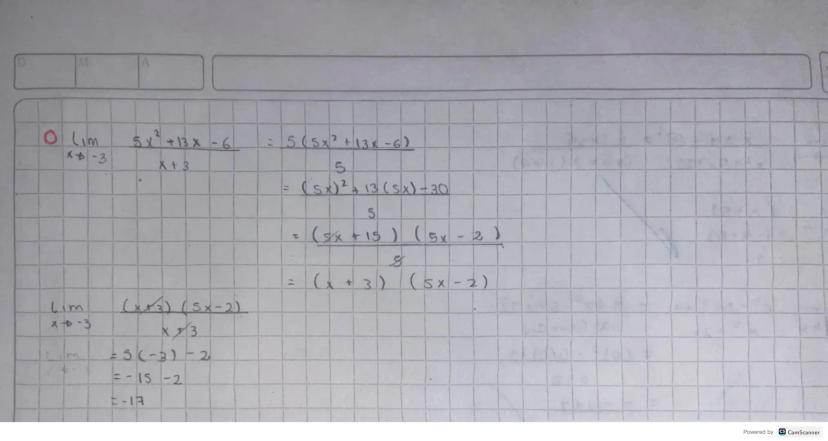 D M A
Lim 5x² + 13x - 6 = 5(5x² + 13x - 6)
x→-3 x + 3 5
= (5x)² + 13(5x) - 30
5
= (5x + 15) (5x - 2)
5
= (x + 3) (5x - 2)
Lim (x+3) (5x-2)
x→-3 x + 3
= 5(-3) - 2
= -15 - 2
= -17
Powered by CamScanner